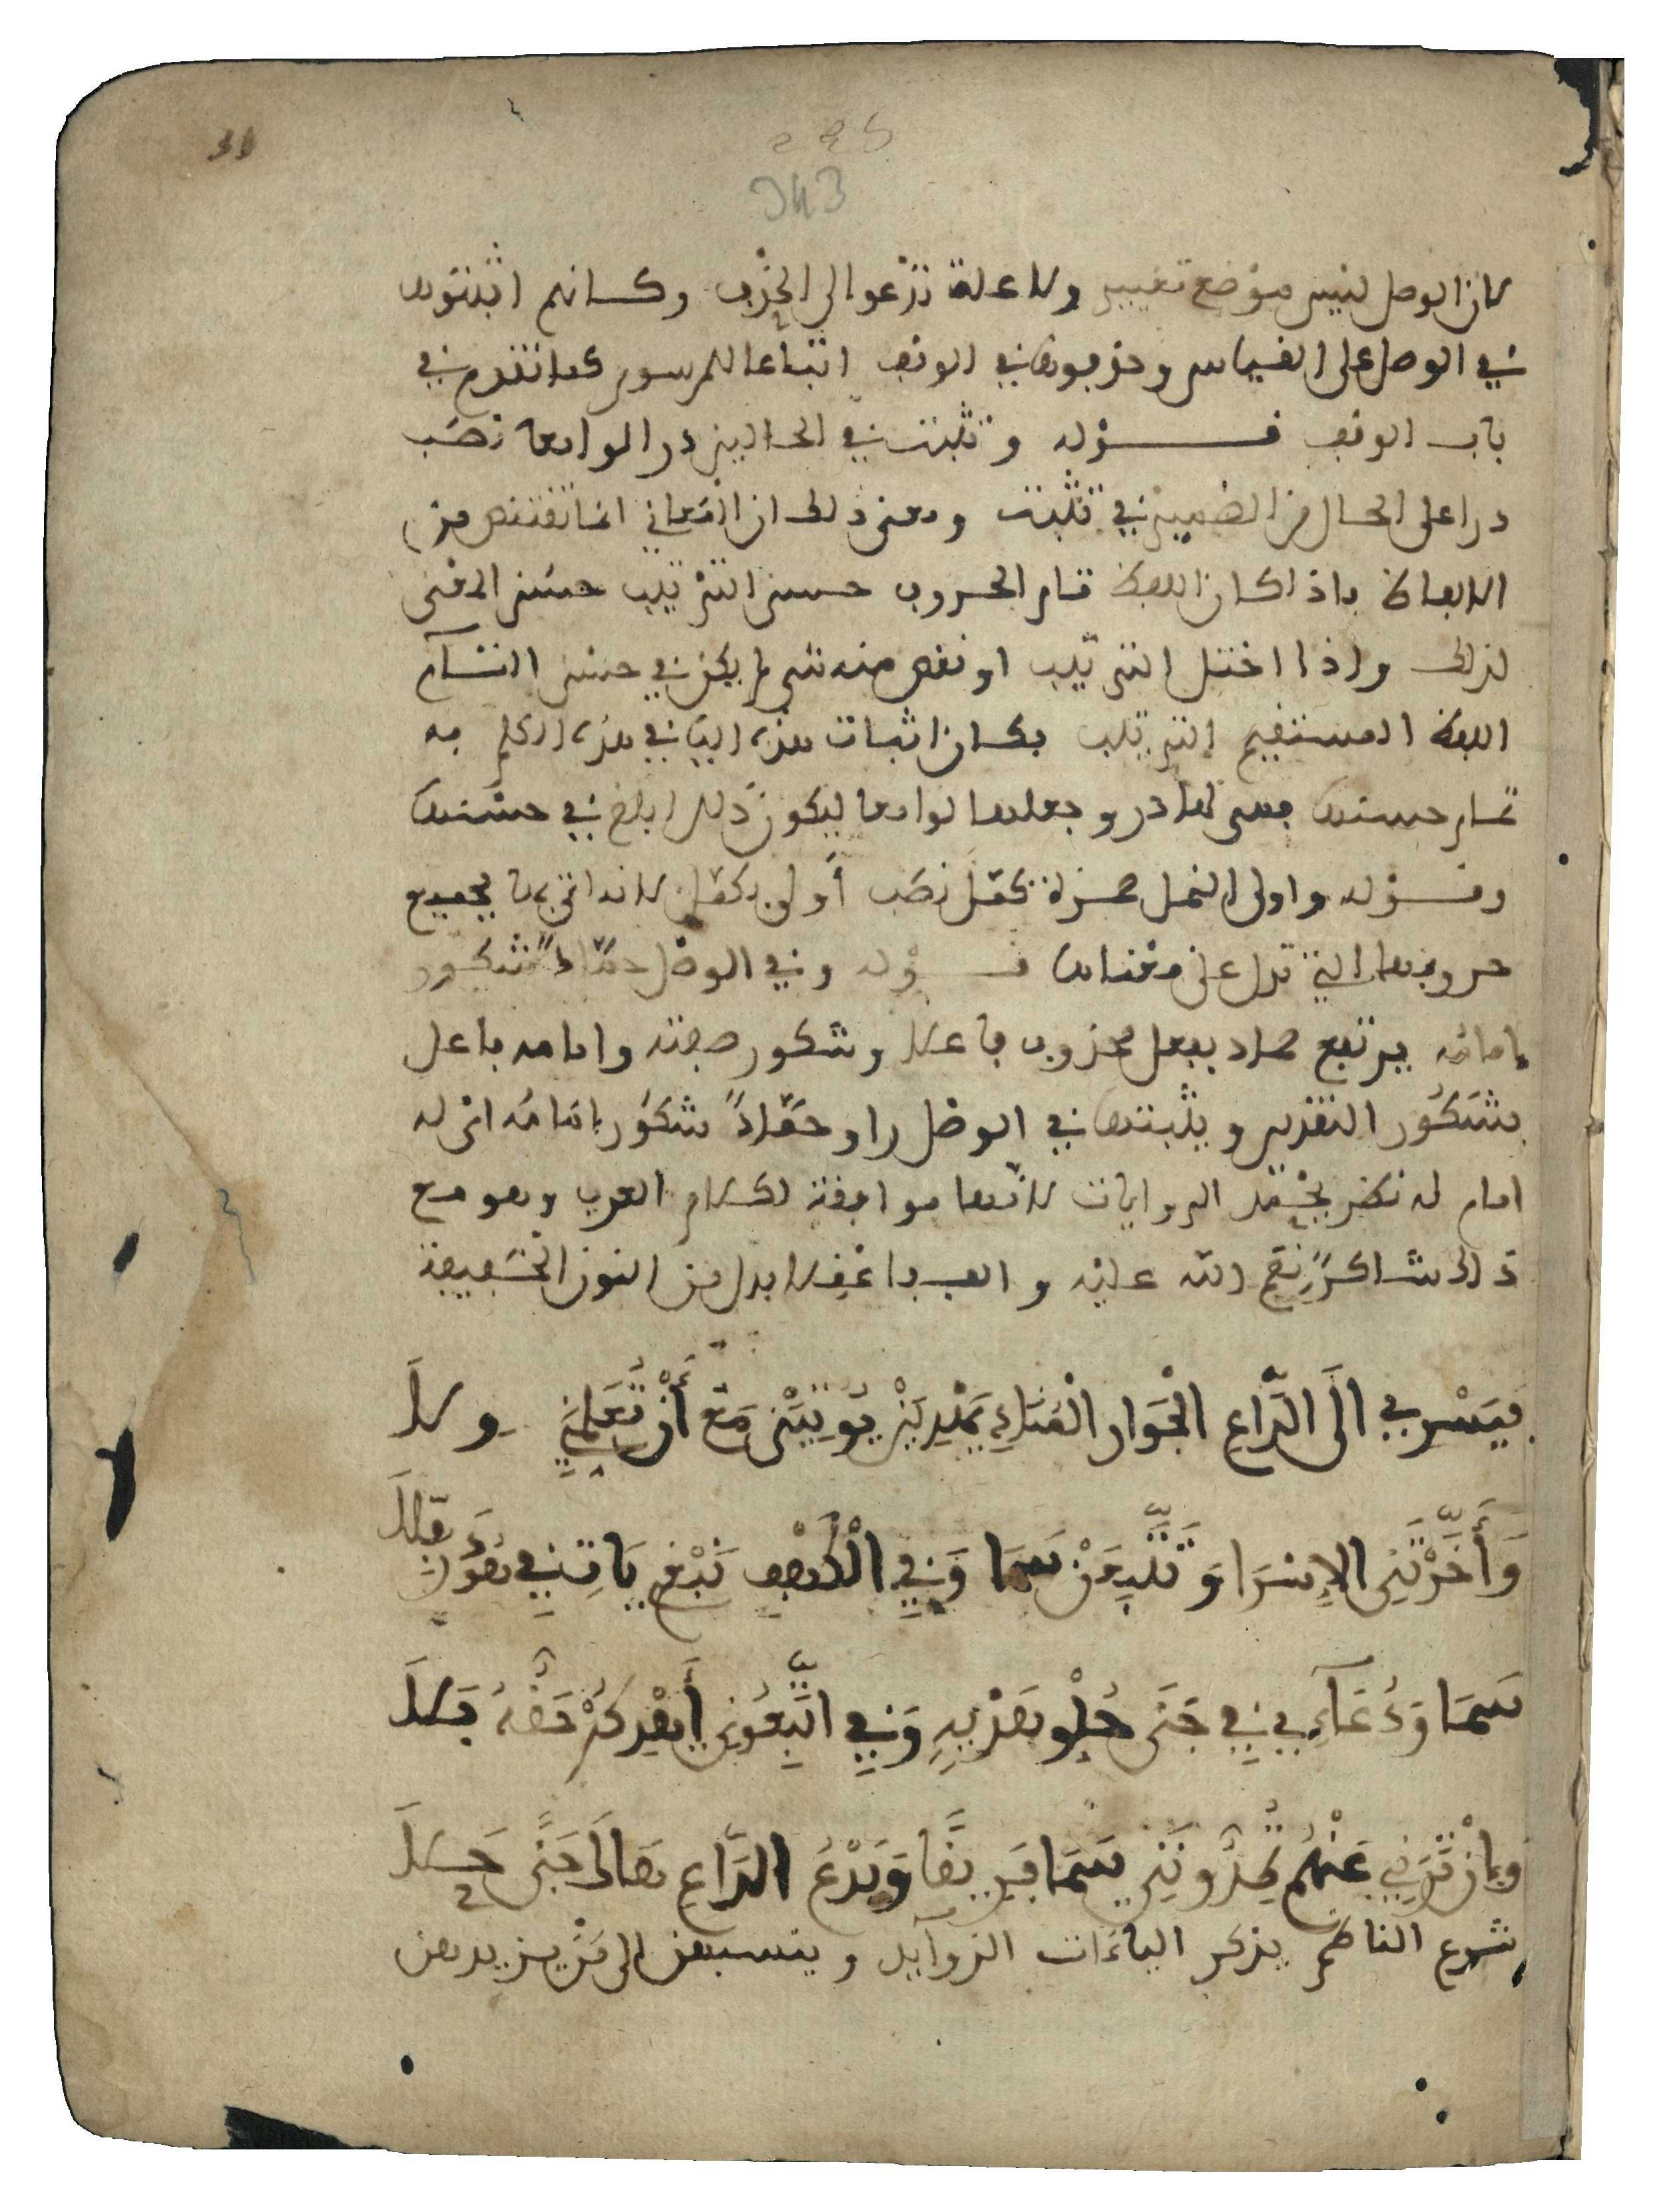 343
لان الوصل ليس موضع تغيير ولا علة تدعوا الى الحذف وكانهم اثبتوها
في الوصل على القياس وحذفوها في الوقف اتباعا للمرسوم كما تقدم في
باب الوقف قوله وتثبت في الحالين درا لوامعا نصب
درا على الحال من الضمير في تثبت ومعنى ذلك ان المعاني انما تقتنص من
الالفاظ فاذا كان اللفظ تام الحروف حسن الترتيب حسن المعنى
لذلك واذا اختل الترتيب او نقص منه شي لم يكن في حسن التام
اللفظ المستقيم الترتيب فكان اثبات هذه اليا في هذه الكلم به
تمام حسنها فسمى لها در وجعلها لوامعا ليكون ذلك ابلغ في حسنها
وقوله واولى النمل حمزة كمل نصب أولى بكمل لانه اتى بها بجميع
حروفها التي تدل على معناها قوله وفي الوصل حمّادٌ شكور
إمامه يرتفع حماد بفعل محذوف فاعلا وشكور صفته وامامه فاعل
بشكور التقدير ويثبتها في الوصل راو حمّادٌ شكور إمامه اى له
امام له نظر بجمله الروايات لانها موافقة لكلام العرب وهو مع
ذلك شاكرٌ نعم الله عليه والف فاعقلا بدل من النون الخفيفة
فَيَسْرِي الَى الدَّاعِ الْجَوَارِ الْمُنَادِ يَهْدِيَنْ يُوتِيَنْ مَعْ أَنْ تُعَلِّمَنِي وِلَا
وَأَخَّرْتَنِي الاِسْرَا وَتَتَّبِعَنْ سَمَا وَفِي الْكَهْفِ نَبْغِي يَاتِ فِي هُودَ رُفِّلَا
سَمَا وَدُعَآءِي فِي جَنَى حُلْوِ هَدْيِهِ وَفِي اتَّبِعُونِي أَهْدِكُمْ حَقُّهُ بَلَا
وَإِنْ تَرَنِي عَنْهُمْ تُمِدُّونَنِي سَمَا فَرِيقًا وَيَدْعُ الدَّاعِ هَاكَ جَنًى حَلَا
شرع الناظم يذكر الياءات الزوايد وينسبهن الى من يزيدهن